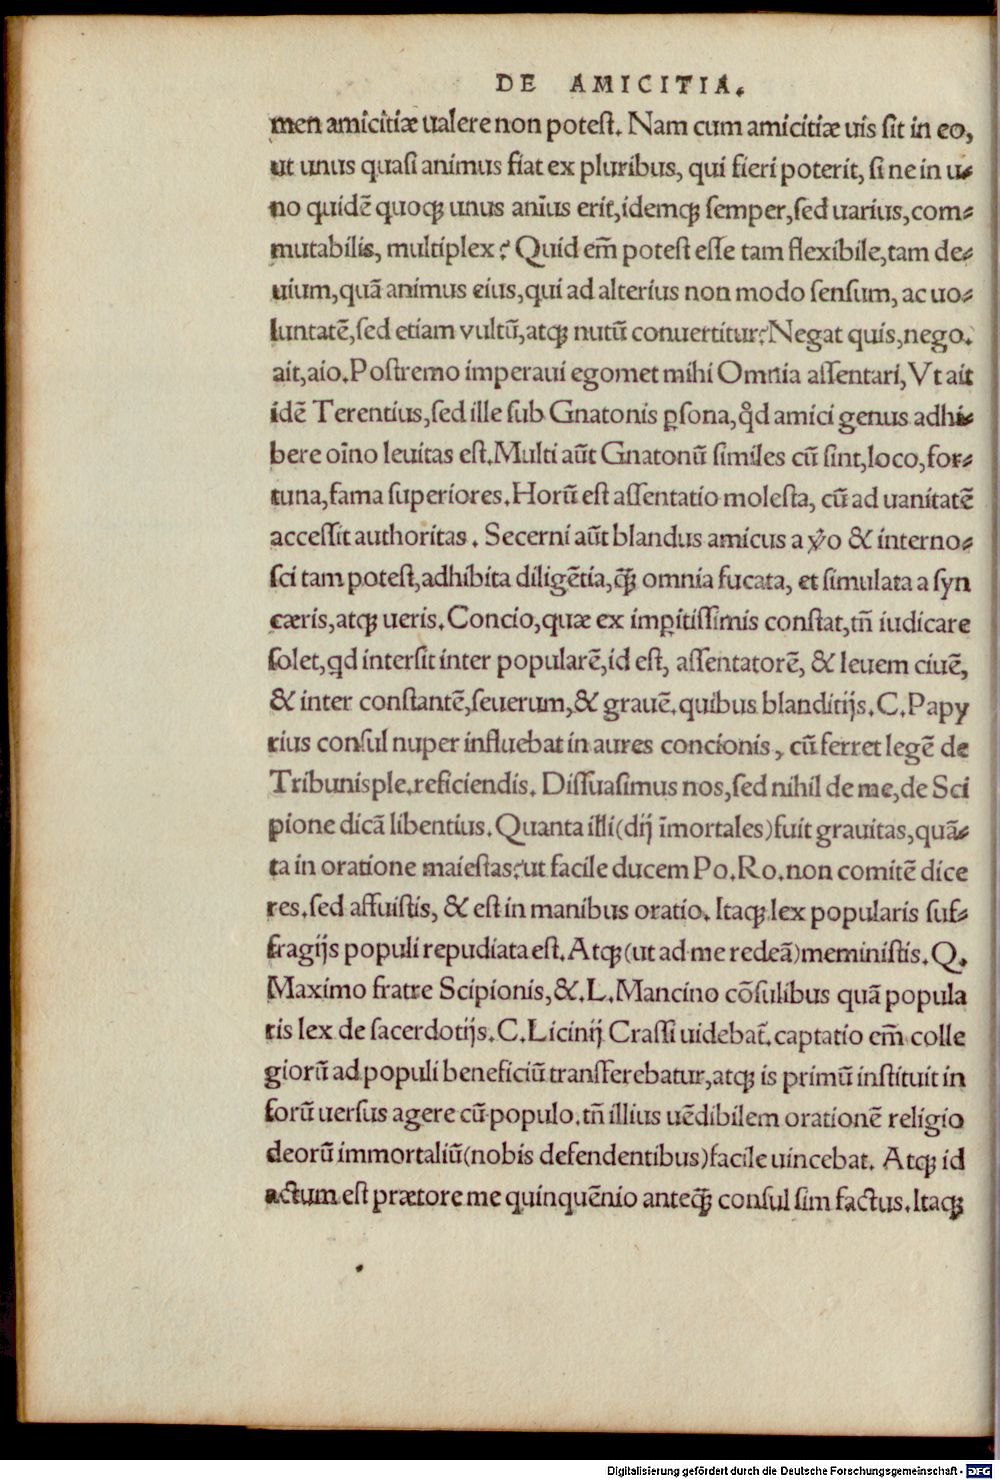 DE AMICITIA.
men amicitiæ ualere non poteſt. Nam cum amicitiæ uis ſit in eo,
ut unus quaſi animus fiat ex pluribus, qui fieri poterit, ſi ne in u-
no quidẽ quoqꝫ unus anĩus erit, idemqꝫ ſemper, ſed uarius, com-
mutabilis, multiplex? Quid em̃ poteſt eſſe tam flexibile, tam de-
uium, quã animus eius, qui ad alterius non modo ſenſum, ac uo-
luntatẽ, ſed etiam vultũ, atqꝫ nutũ conuertitur? Negat quis, nego.
ait, aio. Poſtremo imperaui egomet mihi Omnia aſſentari, Vt ait
idẽ Terentius, ſed ille ſub Gnatonis ꝑſona, qd̛ amici genus adhi-
bere oĩno leuitas eſt. Multi aũt Gnatonũ ſimiles cũ ſint, loco, for-
tuna, fama ſuperiores. Horũ eſt aſſentatio moleſta, cũ ad uanitatẽ
acceſſit authoritas. Secerni aũt blandus amicus a v̊o & interno-
ſci tam poteſt, adhibita diligẽtia, q̃ꝫ omnia fucata, et ſimulata a ſyn
cæris, atqꝫ ueris. Concio, quæ ex imꝑitiſſimis conſtat, tñ iudicare
ſolet, qd interſit inter popularẽ, id eſt, aſſentatorẽ, & leuem ciuẽ,
& inter conſtantẽ, ſeuerum, & grauẽ. quibus blanditijs. C. Papy
rius conſul nuper influebat in aures concionis, cũ ferret legẽ de
Tribunis ple. reficiendis. Diſſuaſimus nos, ſed nihil de me, de Sci
pione dicã libentius. Quanta illi (dij ĩmortales) fuit grauitas, quã-
ta in oratione maieſtas? ut facile ducem Po. Ro. non comitẽ dice
res. ſed affuiſtis, & eſt in manibus oratio. Itaqꝫ lex popularis ſuf-
fragijs populi repudiata eſt. Atqꝫ (ut ad me redeã) meminiſtis. Q.
Maximo fratre Scipionis, &. L. Mancino cõſulibus quã popula
ris lex de ſacerdotijs. C. Licinij Craſſi uidebat̃. captatio em̃ colle
giorũ ad populi beneficiũ transferebatur, atqꝫ is primũ inſtituit in
forũ uerſus agere cũ populo. tñ illius uẽdibilem orationẽ religio
deorũ immortaliũ (nobis defendentibus) facile uincebat. Atqꝫ id
actum eſt prætore me quinquẽnio anteq̃ꝫ conſul ſim factus. Itaqꝫ
Digitalisierung gefördert durch die Deutsche Forschungsgemeinschaft - DFG